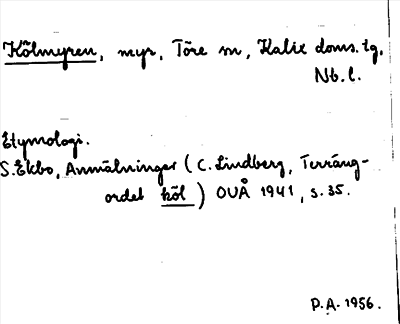 Kölmyren, myr, Töre sn, Kalix doms.tg.
Nb.l.
Etymologi.
S. Ekbo, Anmälningar (C. Lindberg, Terräng-
ordet köl) OUÅ 1941, s. 35.
P.A. 1956.